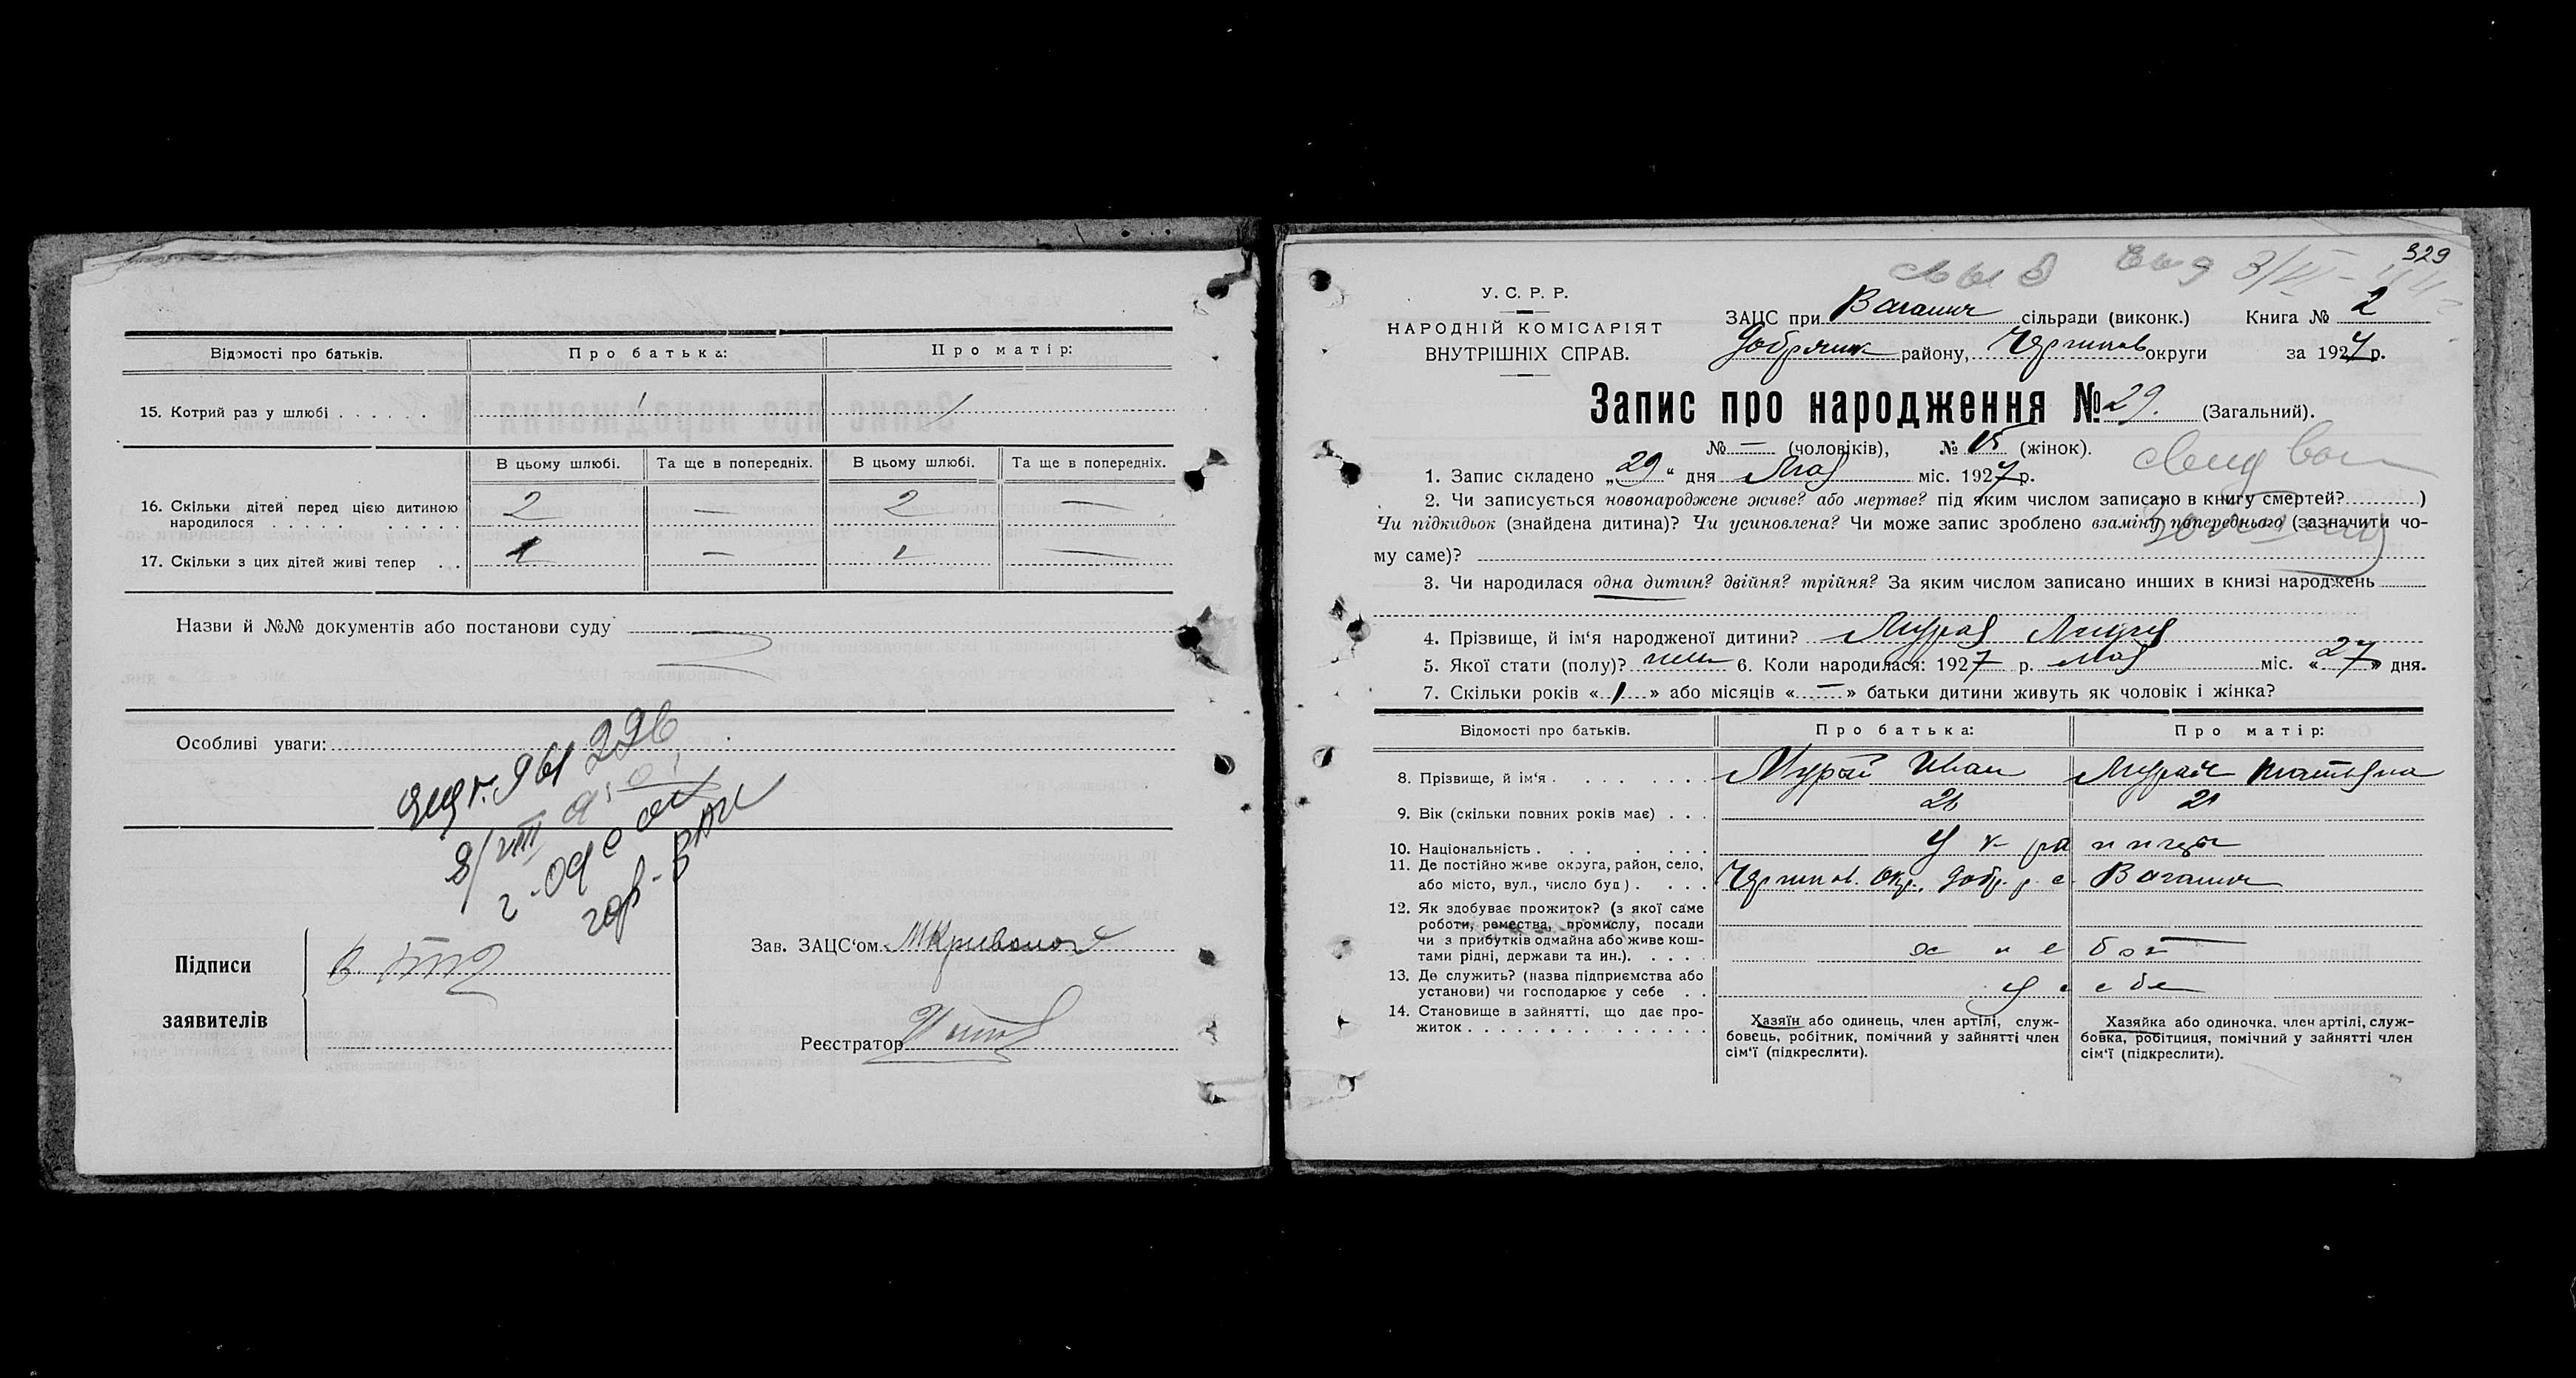 Відомості про батьків.
Про батька:
Про матір:
15. Котрий раз у шлюбі . . . . . .
1
1
В цьому шлюбі.
Та ще в попередніх.
В цьому шлюбі.
Та ще в попередніх.
16. Скільки дітей перед цією дитиною
народилося . . . . . . . . . .
2 — 2 —
17. Скільки з цих дітей живі тепер . .
1 — 1 —
Назви й №№ документів або постанови суду
Особливі уваги:
Підписи
заявителів
Зав. ЗАЦС‘ом
Реєстратор
329
У. С. Р. Р.
НАРОДНІЙ КОМІСАРІЯТ
ВНУТРІШНІХ СПРАВ.
ЗАЦС при Ваганич сільради (виконк.) Книга № 2
Добрянк району, Чернигов округи за 1927 р.
Запис про народження № 29. (Загальний).
№ — (чоловіків), № 15 (жінок).
1. Запис складено „29“ дня Мая міс. 1927 р.
2. Чи записується новонароджене живе? або мертве? під яким числом записано в книгу смертей? )
Чи підкидьок (знайдена дитина)? Чи усиновлена? Чи може запис зроблено взаміну попереднього (зазначити чо-
му саме)?
3. Чи народилася одна дитин? двійня? трійня? За яким числом записано инших в книзі народжень
4. Прізвище, й ім‘я народженої дитини?
5. Якої стати (полу)? жен 6. Коли народилася: 1927 р. Мая міс. «27» дня.
7. Скільки років «1» або місяців «—» батьки дитини живуть як чоловік і жінка?
Відомості про батьків.
Про батька:
Про матір:
8. Прізвище, й ім‘я . . . . . . . .
Мурай Иван
Мурай Татьяна
9. Вік (скільки повних років має) . . .
21
10. Національність . . . . . . .
Украинцы
11. Де постійно живе округа, район, село,
або місто, вул., число буд) . . . . .
Чернигов. Окр., Добр. р. с. Ваганич
12. Як здобуває прожиток? (з якої саме
роботи, ремества, промислу, посади
чи з прибутків одмайна або живе кош-
тами рідні, держави та ин.). . . . .
хлебоп
13. Де служить? (назва підприємства або
установи) чи господарює у себе . .
У себе
14. Становище в зайнятті, що дає про-
житок . . . . . . . . . . . . . .
Хазяїн або одинець, член артілі, служ-
бовець, робітник, помічний у зайнятті член
сім‘ї (підкреслити).
Хазяйка або одиночка. член артілі, служ-
бовка, робітциця, помічний у зайнятті член
сім‘ї (підкреслити).